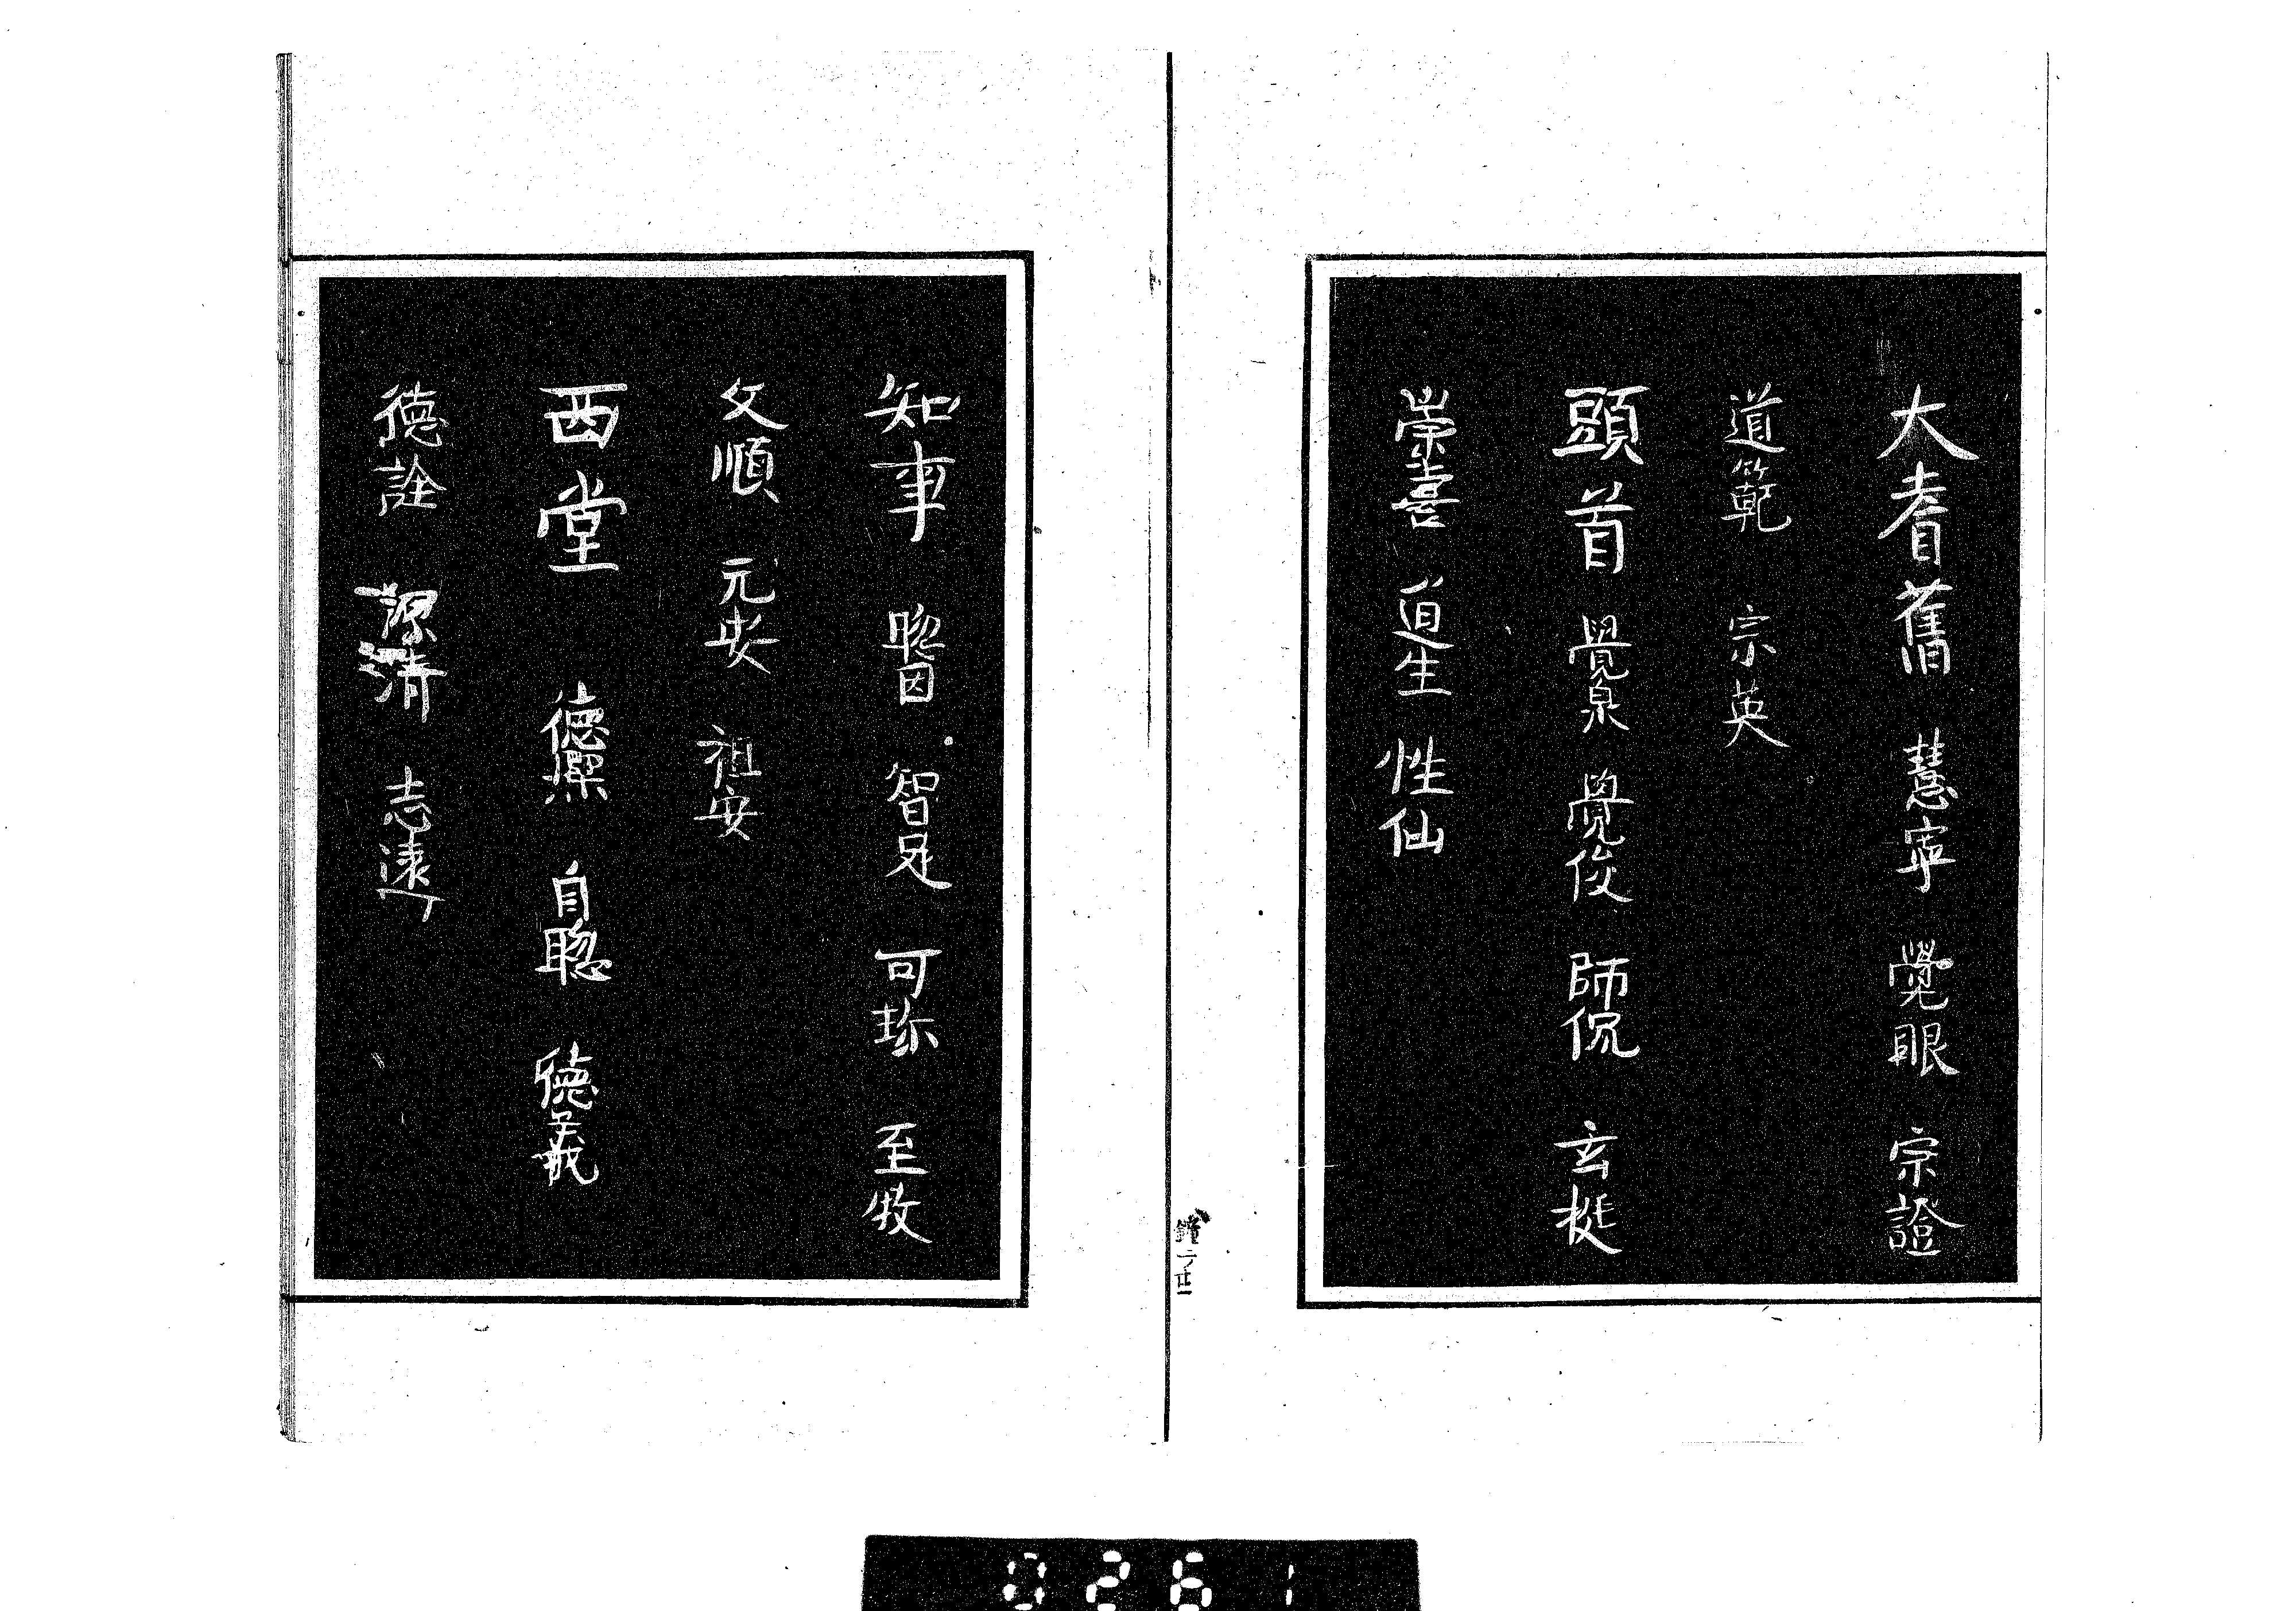 大耆舊 慧寧 覺眼 宗證
道範 宗英
頭首 覺泉 覺俊 師侃 玄挺
崇喜 道生 性仙
鐘二ノ廿一
知事 聰因 智足 可珎 至牧
文順 元安 祖安
西堂 德凞 自聰 德義
德詮 源清 志遠
0261